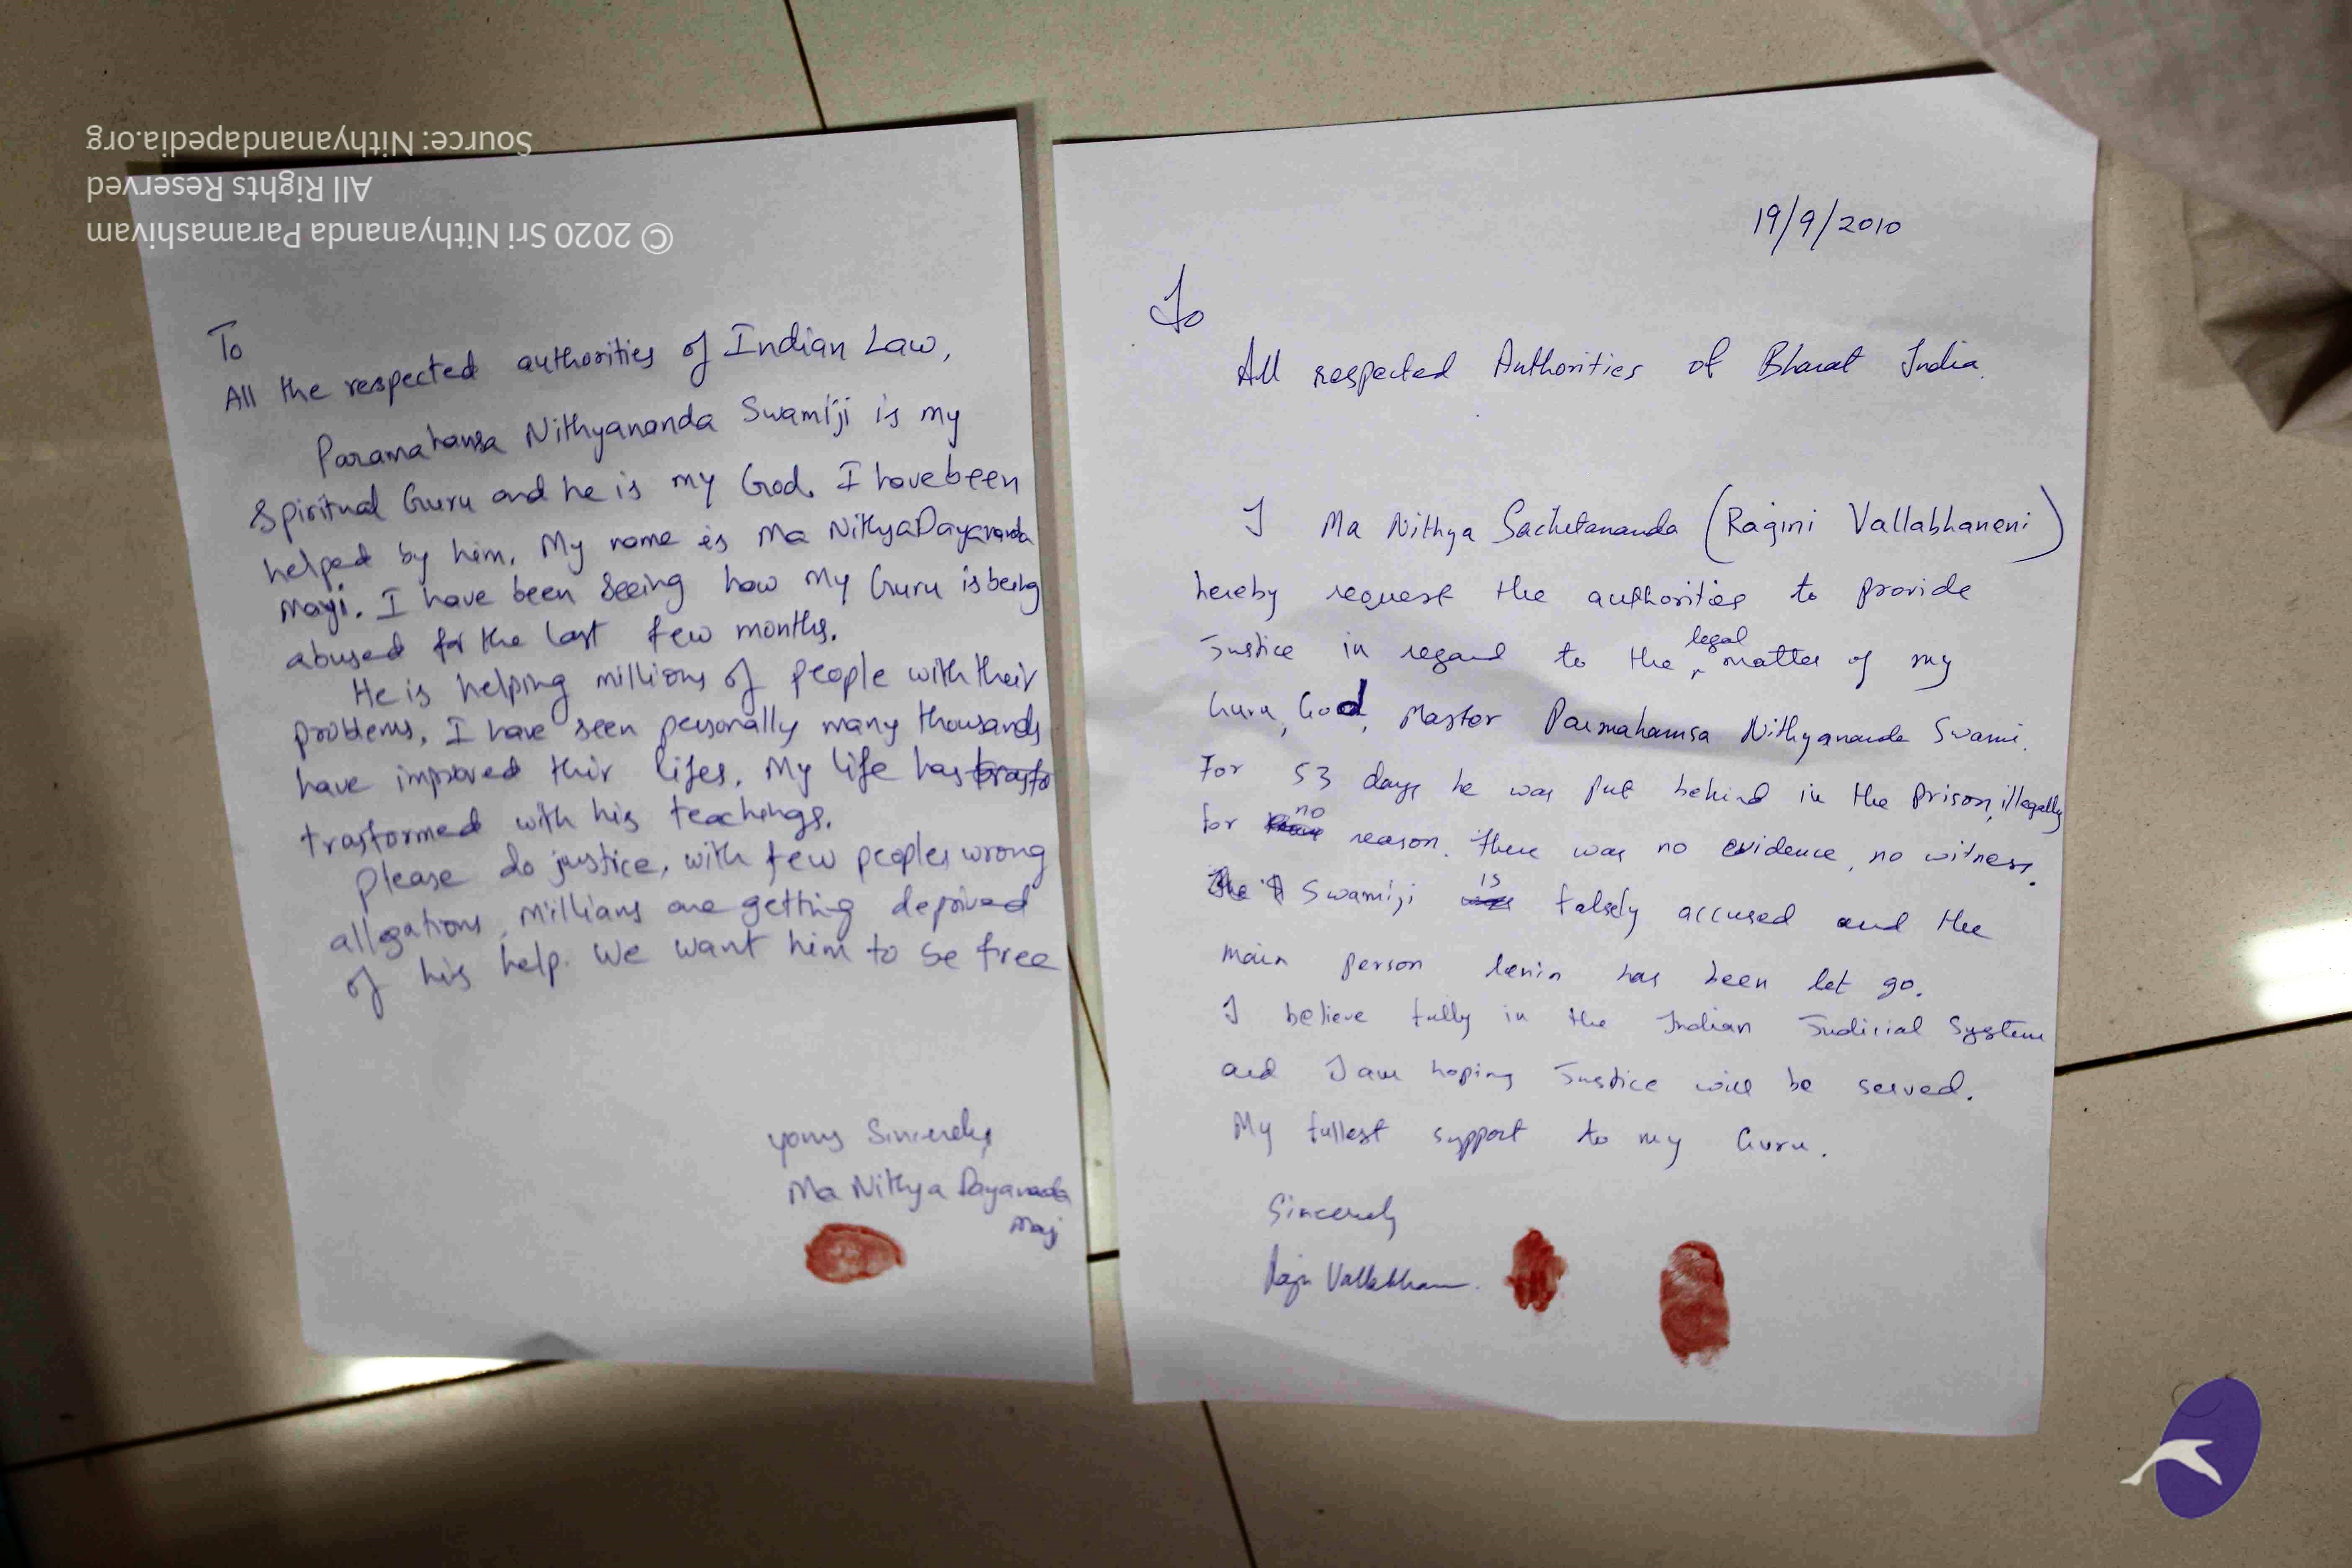 To
All the respected authorities of Indian Law,
Paramahamsa Nithyananda Swamiji is my
Spiritual Guru and he is my God. I have been
helped by him. My name is Ma Nithya Dayananda
mayi. I have been seeing how my Guru is being
abused for the last few months.
He is helping millions of people with their
problems. I have seen personally many thousands
have improved their lifes. My life has
trasformed with his teachings.
Please do justice, with few peoples wrong
allegations, millians are getting deprived
of his help. We want him to be free
yours Sincerely,
Ma Nithya Dayananda
mayi
19/9/2010
To
All respected Authorities of Bharat India.
I Ma Nithya Sachetananda (Ragini Vallabhaneni)
hereby request the authorities to provide
Justice in regard to the legal matter of my
Guru, God, Master Parmahamsa Nithyananda Swami.
For 53 days he was put behind in the prison, illegally
for no reason. There was no evidence, no witness.
Swamiji is falsely accused and the
main person lenin has been let go.
I believe fully in the Indian Judicial System
and I am hoping Justice will be served.
My fullest support to my Guru.
Sincerely
© 2020 Sri Nithyananda Paramashivam
All Rights Reserved
Source: Nithyanandapedia.org